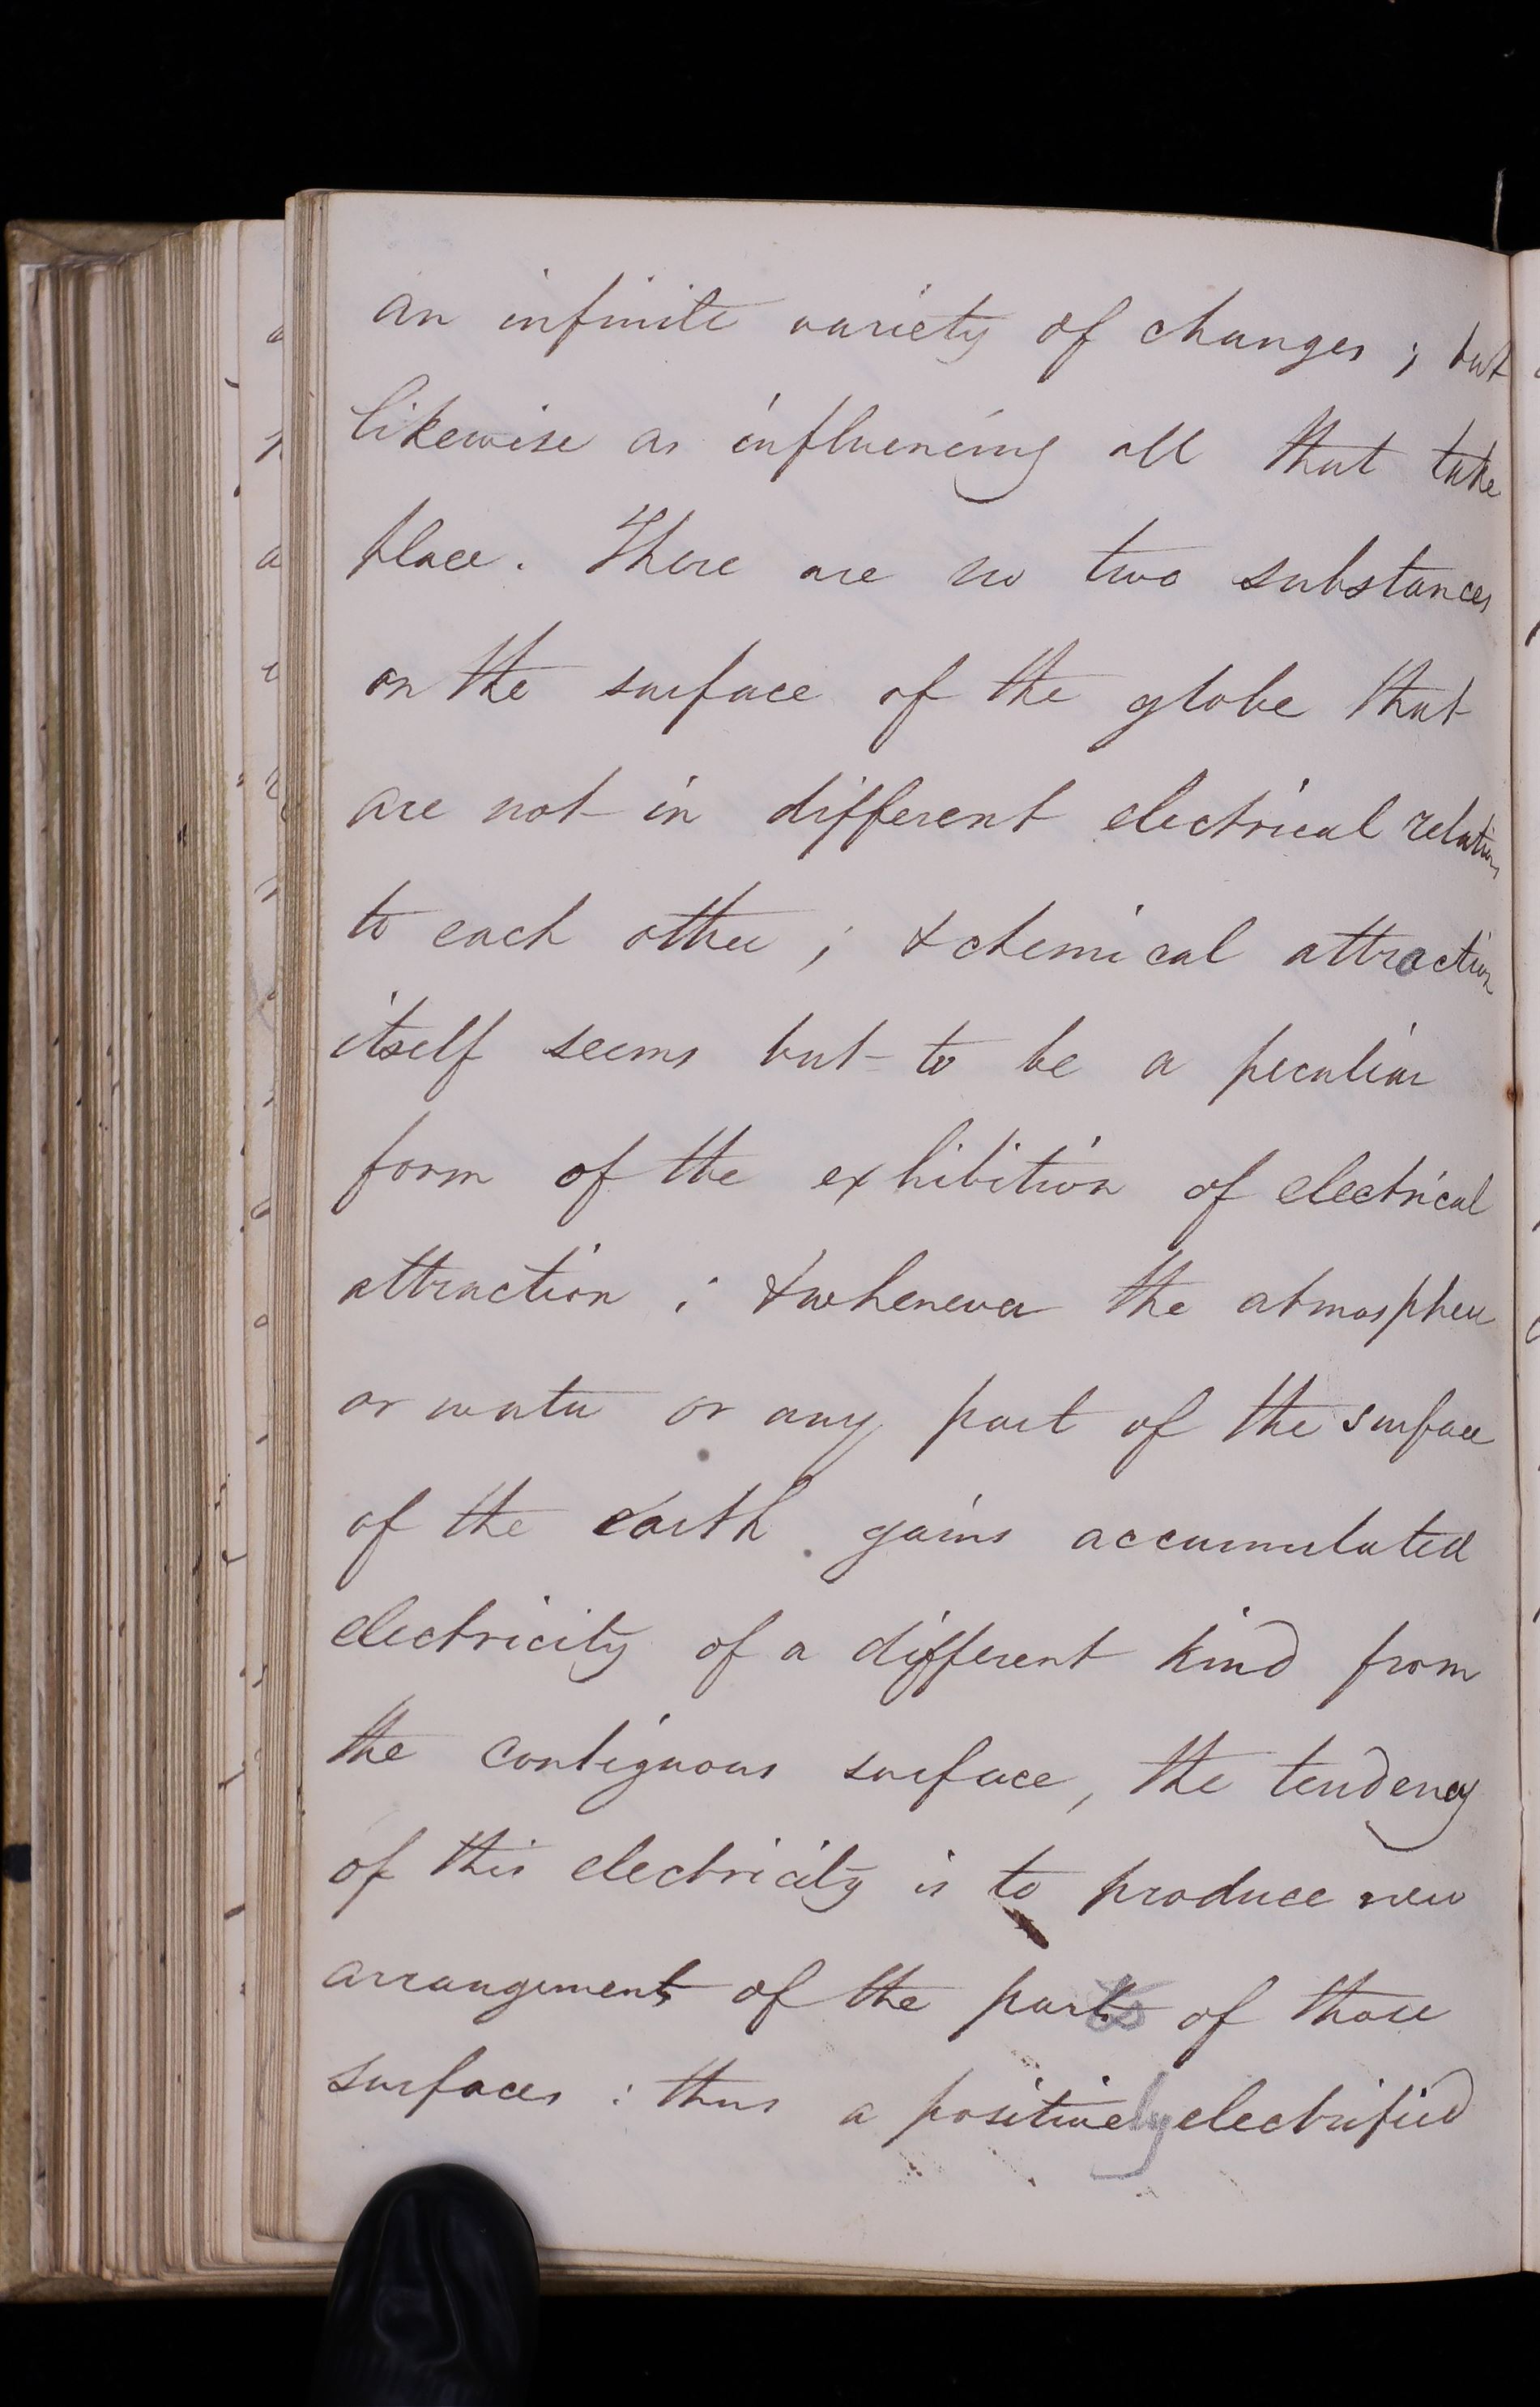 an infinite variety of changes ; but
likewise as influencing all that take
place. There are no two substances
on the surface of the globe that
are not in different electrical relations
to each other ; & chemical attraction
itself seems but to be a peculiar
form of the exhibition of electrical
attraction ; & whenever the atmosphere
or water or any part of the surface
of the earth gains accumulated
electricity of a different kind from
the contiguous surface, the tendency
of this electricity is to produce new
arrangements of the parts of those
surfaces : thus a positively electrified